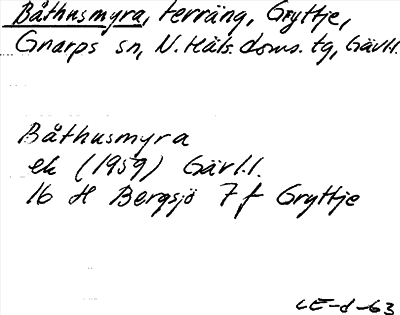 Båthusmyra, terräng, Gryttje,
Gnarps sn, N. Häls. doms. tg, Gävl.l.
Båthusmyra
ek (1959) Gävl.l.
16 H Bergsjö 7 f Gryttje
LE-d-63